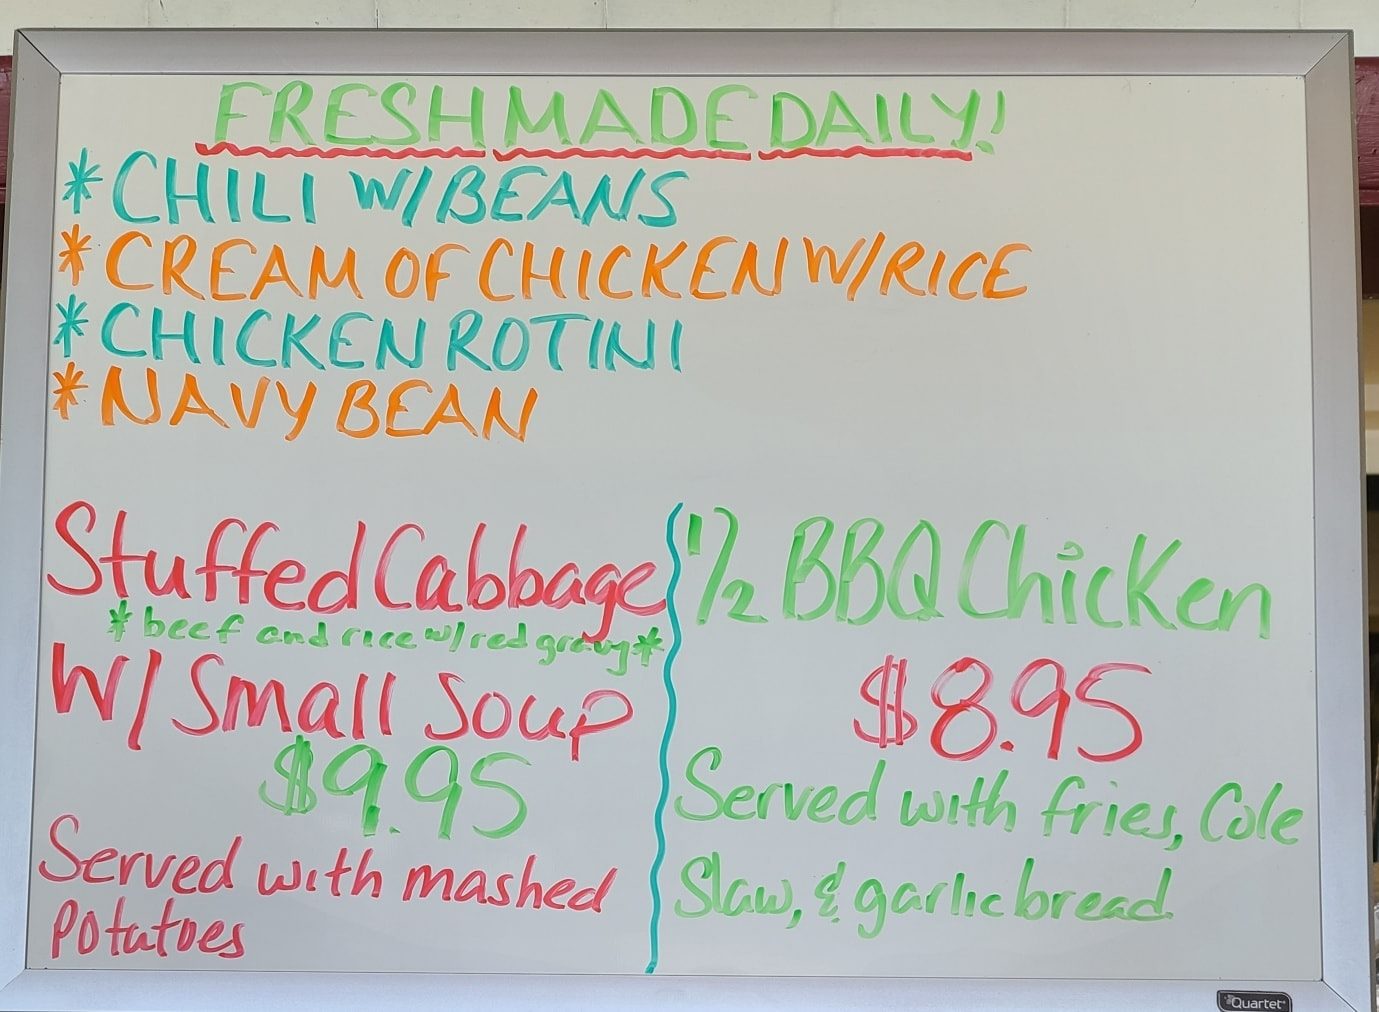 FRESH MADE DAILY!
* CHILI W/BEANS
* CREAM OF CHICKEN W/RICE
* CHICKEN ROTINI
* NAVY BEAN
Stuffed Cabbage
* beef and rice w/red gravy *
W/ Small Soup
$9.95
Served with mashed
Potatoes
1/2 BBQ Chicken
$8.95
Served with fries, Cole
Slaw, & garlic bread
Quartet